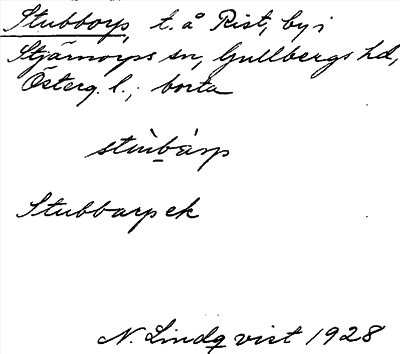 Stubborp, t. å Rist, by i
Stjärnorps sn, Gullbergs hd,
Österg. l.; borta
Stubbarp ek
N. Lindqvist 1928